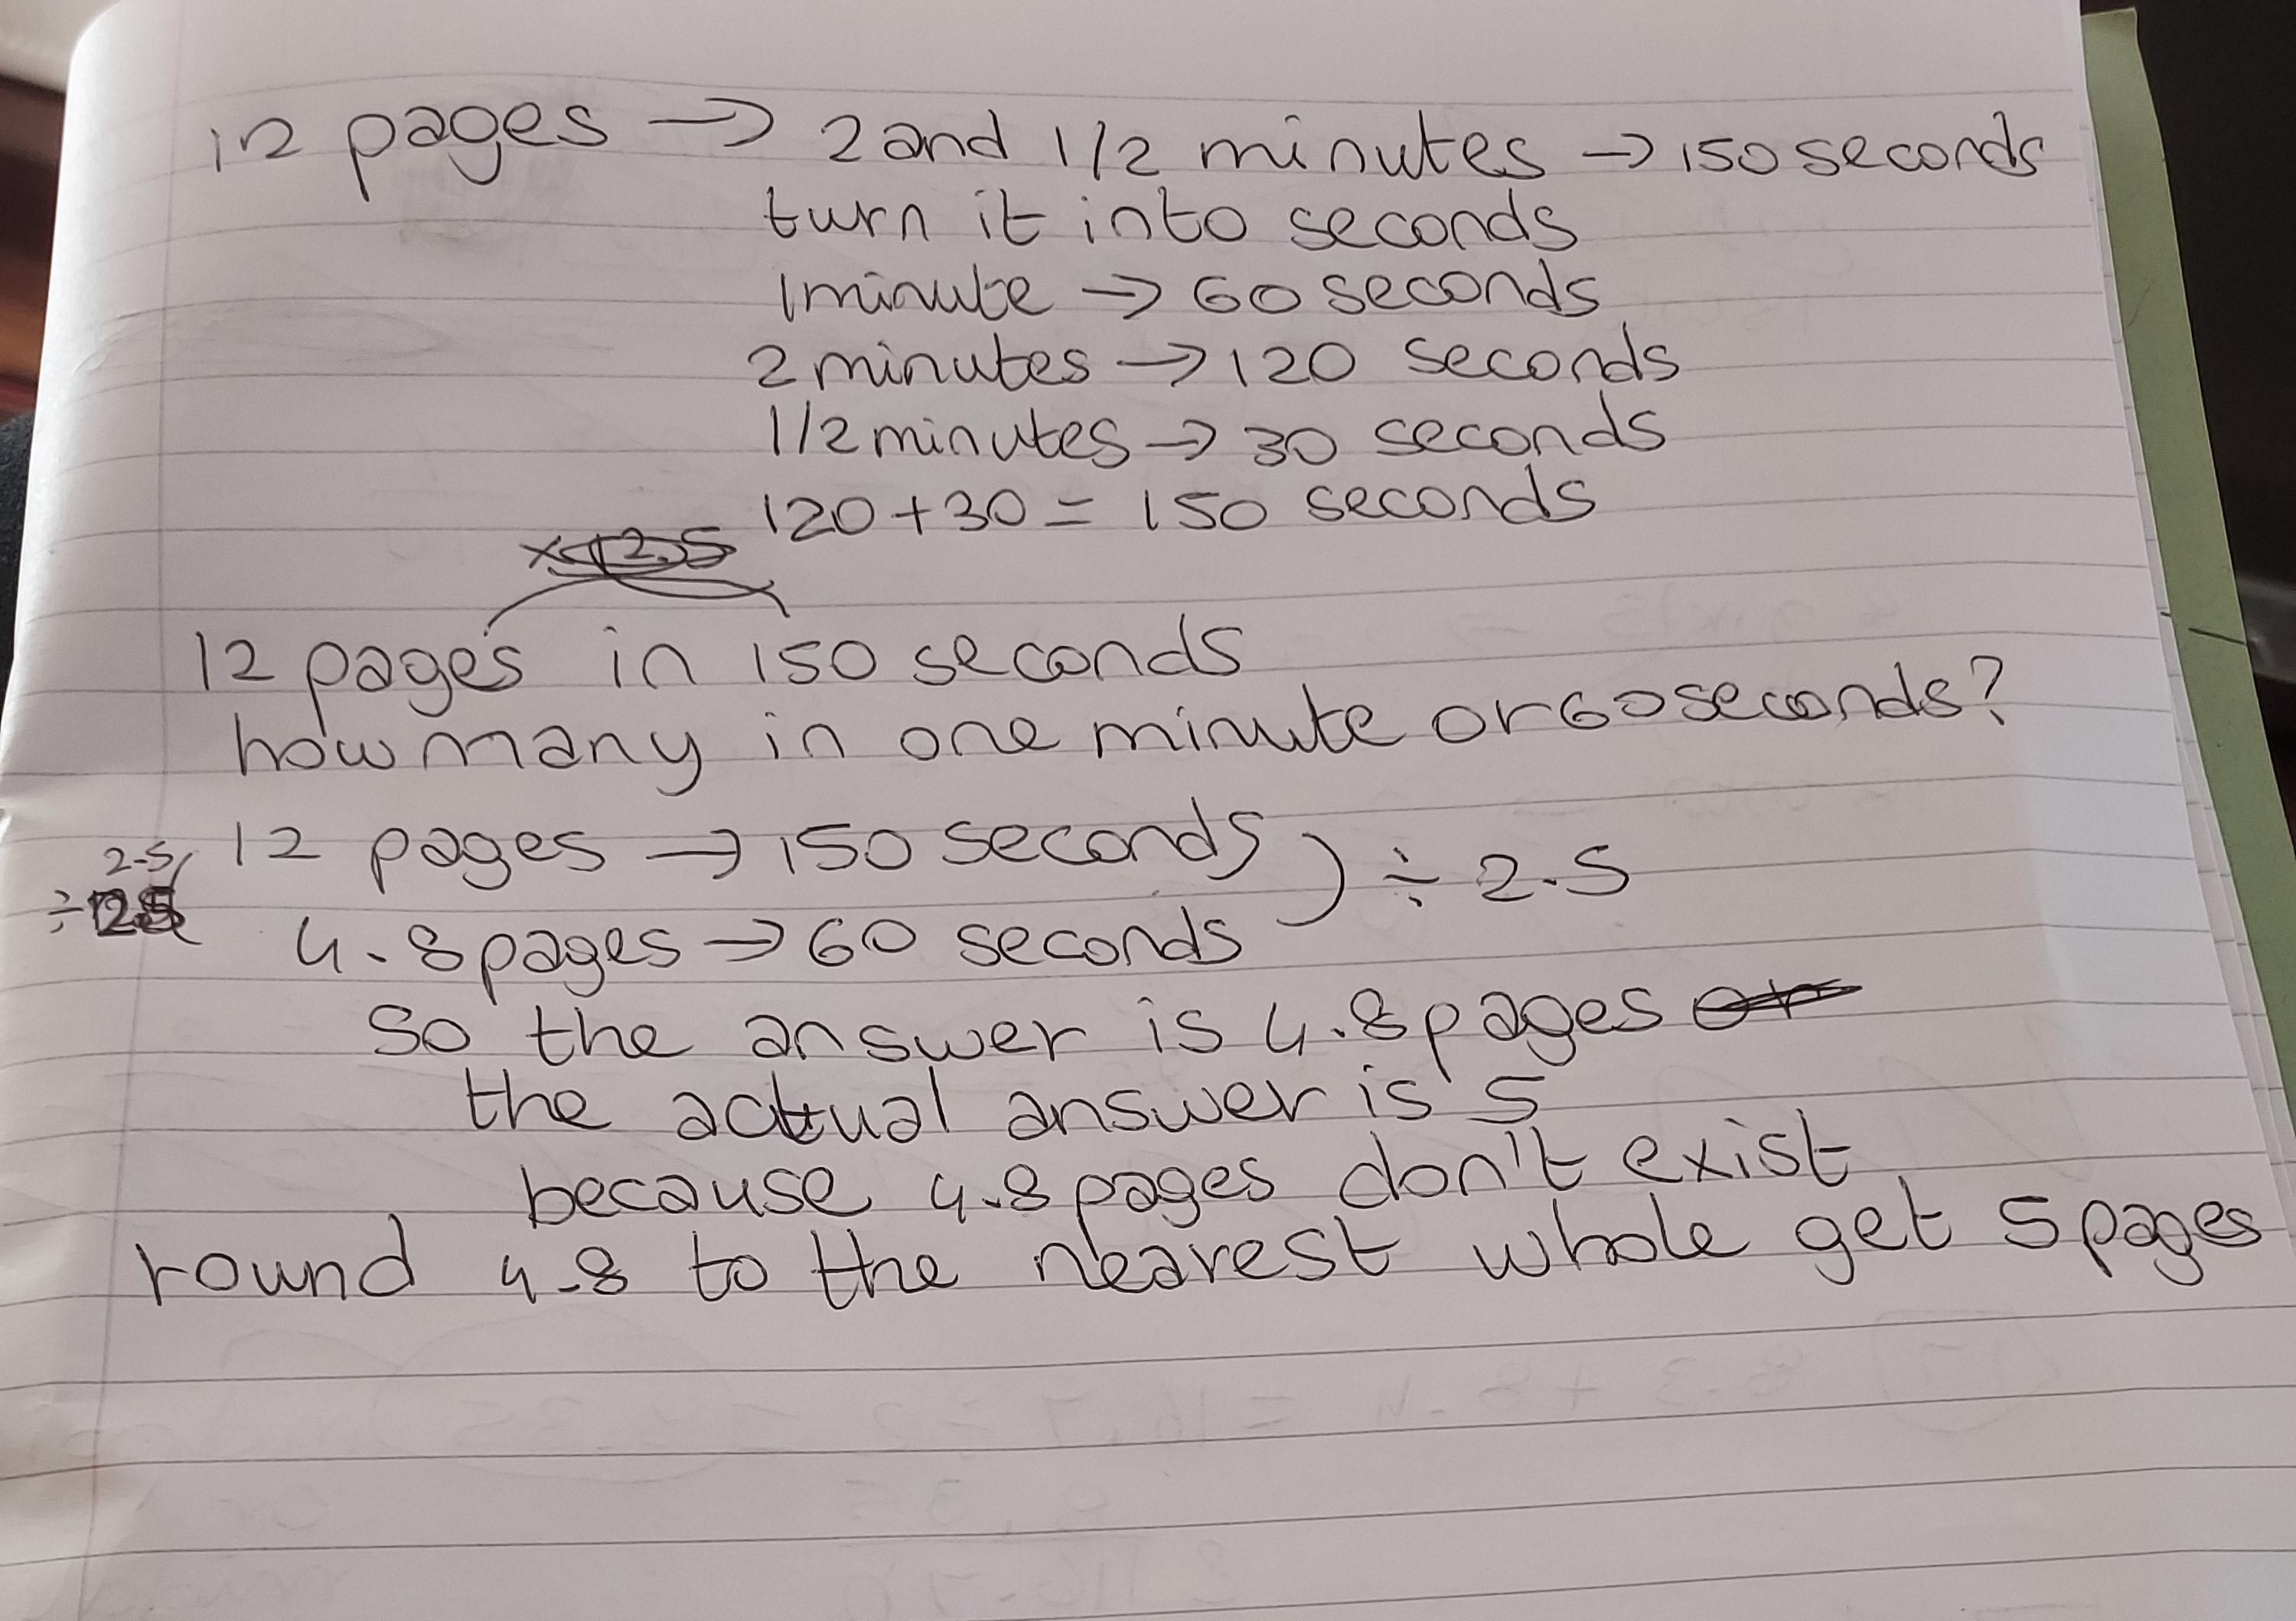 12 pages → 2 and 1/2 minutes → 150 seconds
turn it into seconds
1 minute → 60 seconds
2 minutes → 120 seconds
1/2 minutes → 30 seconds
120 + 30 = 150 seconds
12 pages in 150 seconds
how many in one minute or 60 seconds?
12 pages → 150 seconds
2.5
÷
÷ 2.5
4.8 pages → 60 seconds
So the answer is 4.8 pages
the actual answer is 5
because 4.8 pages don't exist
round 4.8 to the nearest whole get 5 pages